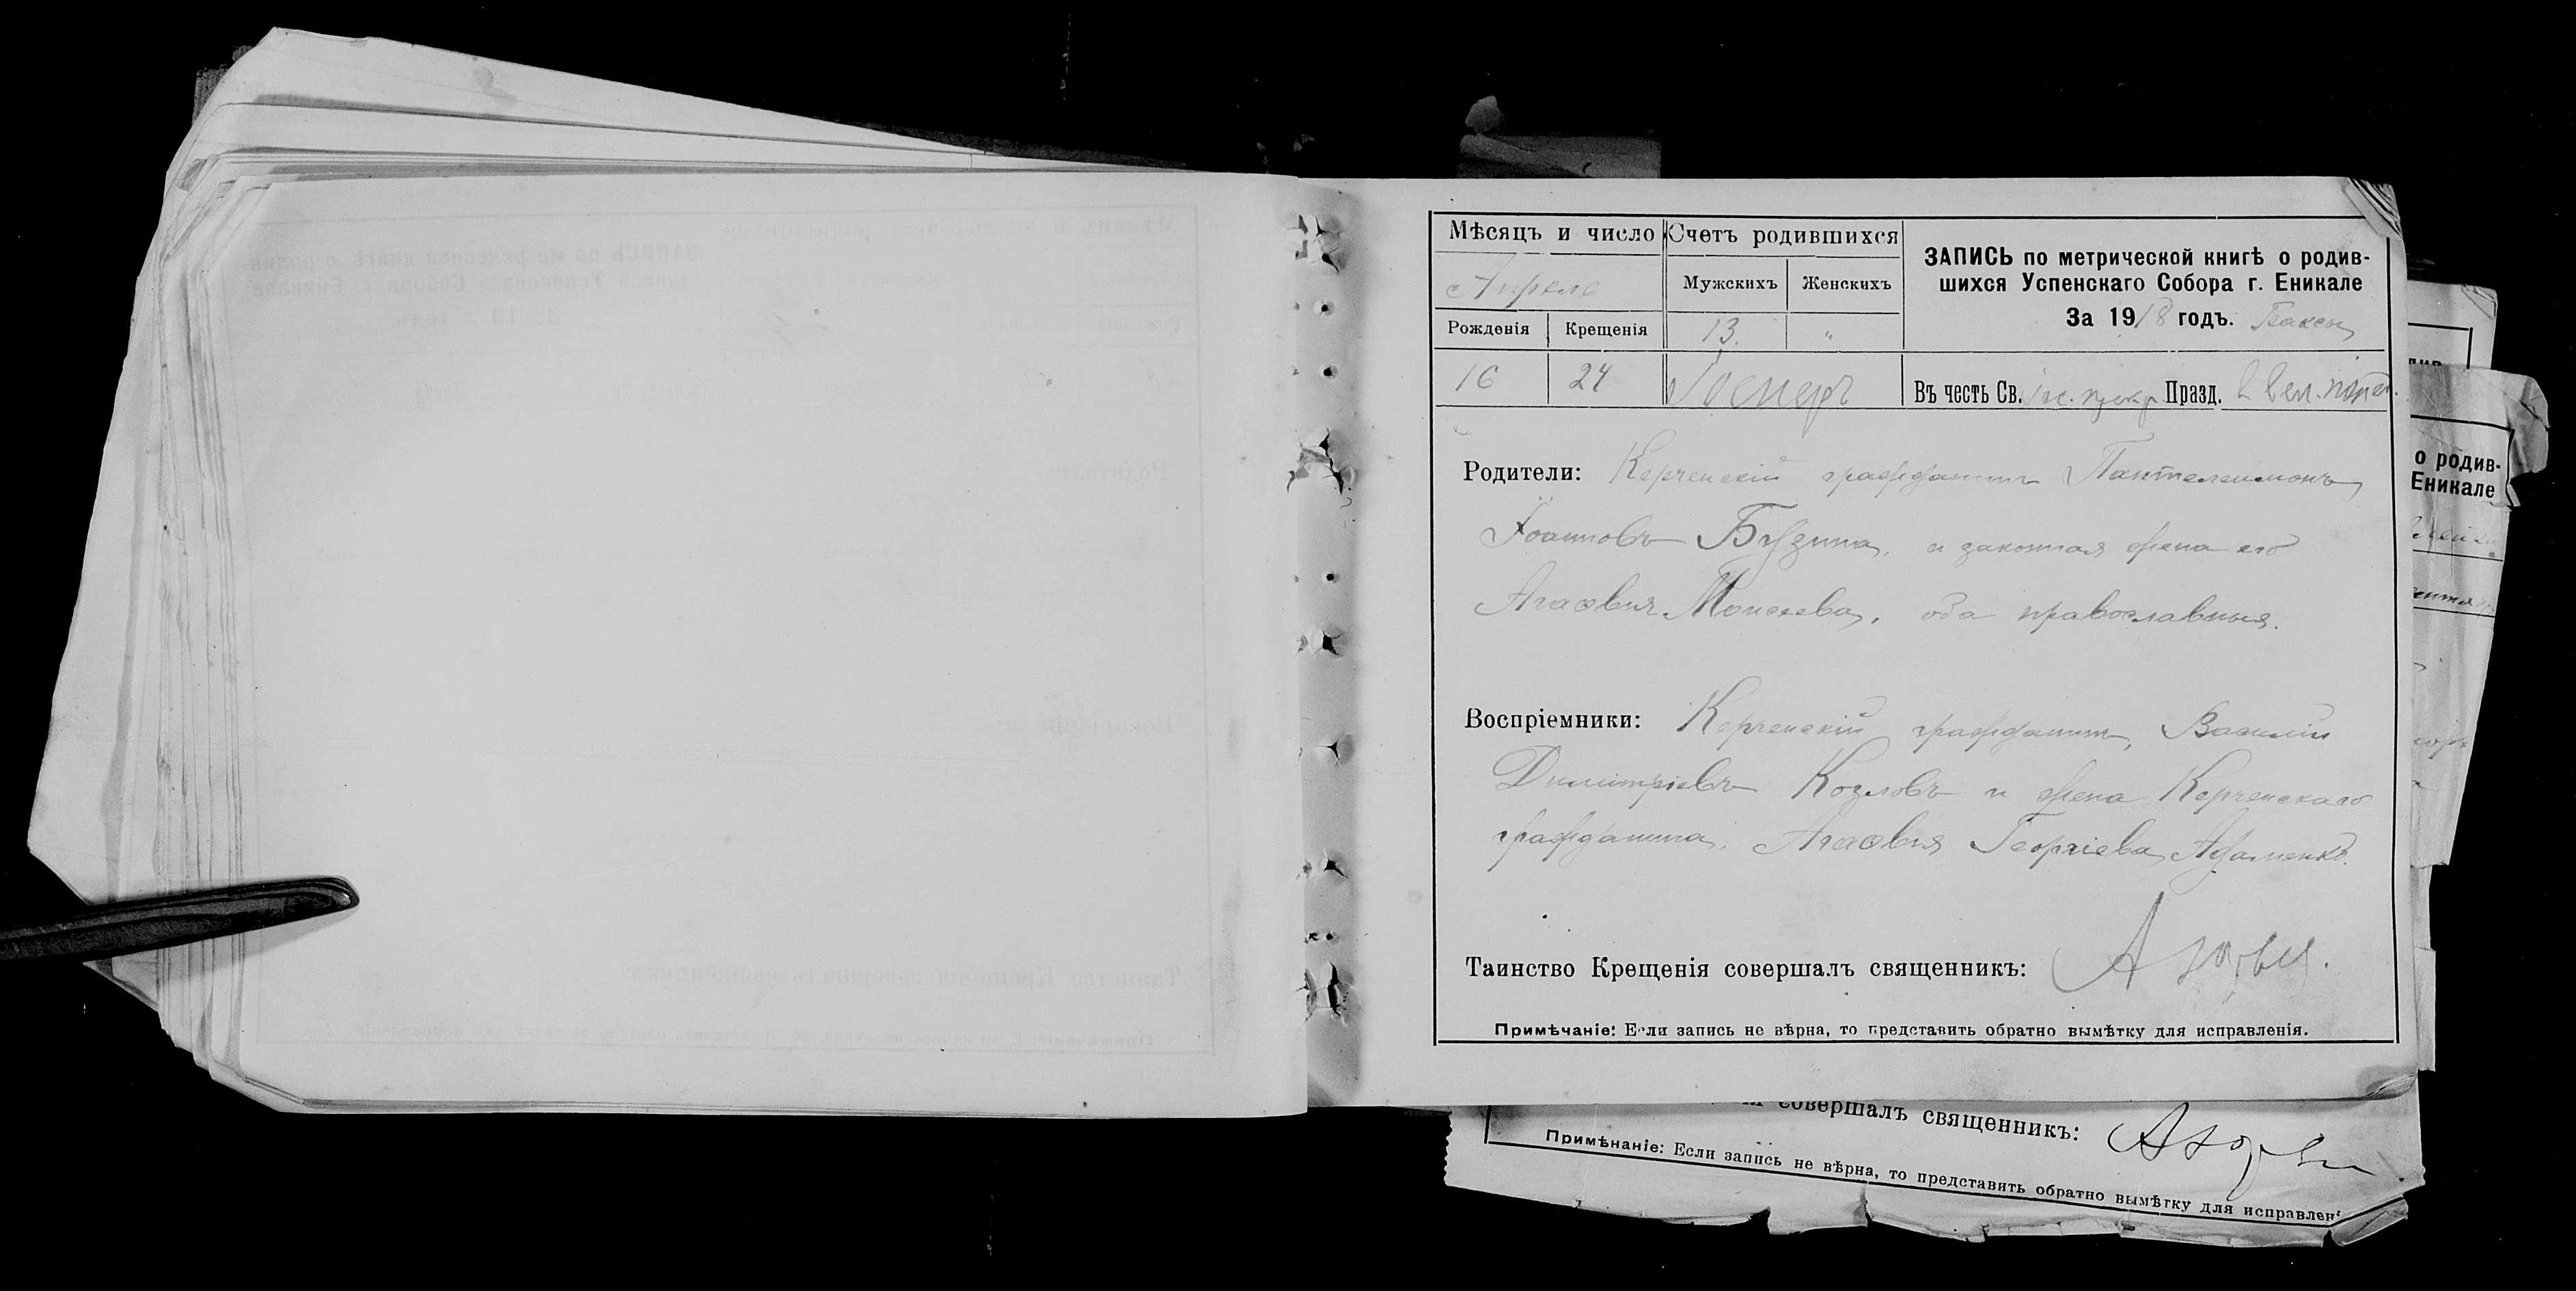 Мѣсяцъ и число
Счетъ родившихся
ЗАПИСЬ по метрической книгѣ о родив-
шихся Успенскаго Собора г. Еникале
За 1918 годъ. Баксы
Апрель
Мужскихъ Женскихъ
Рожденія Крещенія
13. "
16 24
Въ честь Св. Празд.
Родители: Керченскій гражданинъ Пантелеимонъ
Іоанновъ Бузина, и законная жена его
Агаѳія Моисеева, оба православныя.
Воспріемники: Керченскій гражданинъ, Василій
Димитріевъ Козловъ и жена Керченскаго
гражданина, Агаѳія Георгіева Адаменко.
Таинство Крещенія совершалъ священникъ:
Примѣчаніе: Если запись не вѣрна, то представить обратно вымѣтку для исправленія.
о родив-
Еникале
совершалъ священникъ:
Примѣчаніе: Если запись не вѣрна, то представить обратно вымѣтку для исправлен